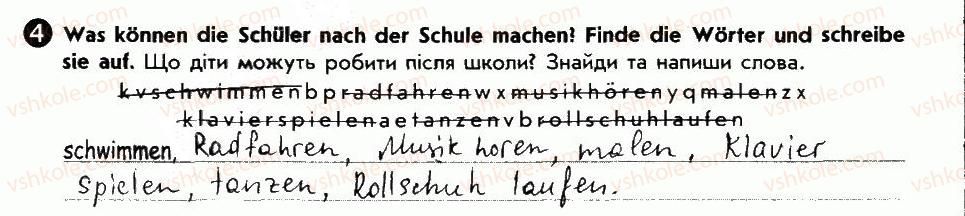 4 Was können die Schüler nach der Schule machen? Finde die Wörter und schreibe
sie auf. Що діти можуть робити після школи? Знайди та напиши слова.
kvschwimmenbpradfahrenwxmusikhörenyqmalenzx
klavierspielenaetanzenvbrollschuhlaufen
schwimmen, Radfahren, Musik horen, malen, Klavier
spielen, tanzen, Rollschuh laufen.